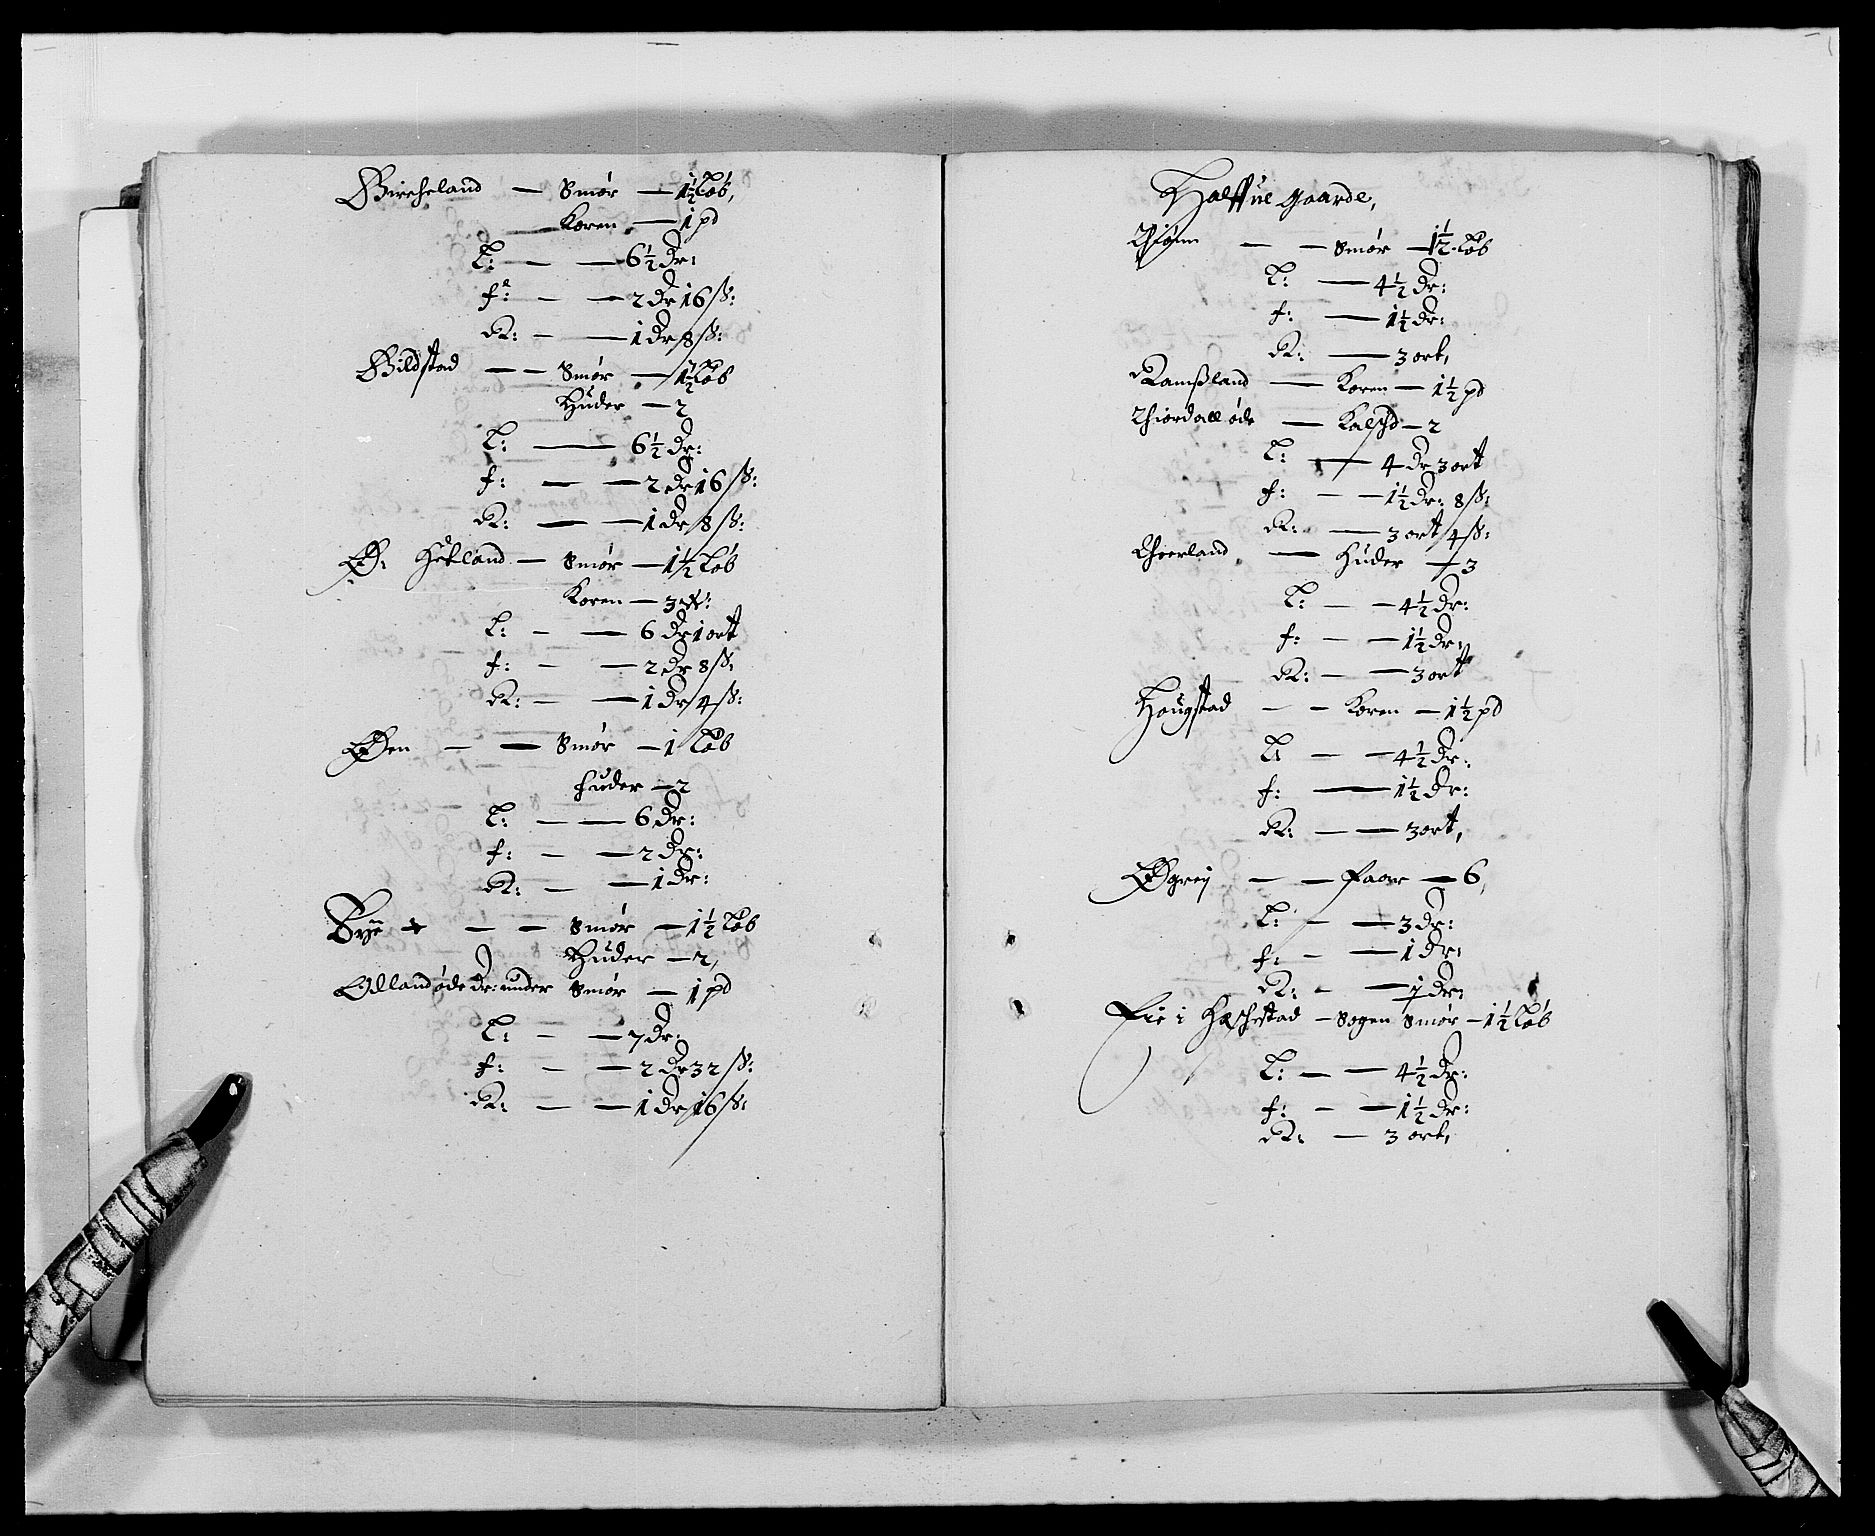 Bircheland — Smør — 1½ Løb,
Koren — 1 pd
L: — — 6½ Dr:
f: — — 2 Dr 16 ß:
R: — — 1 Dr 8 ß:
Bildstad — — Smør — 1½ Løb
Huder — 2
L: — — 6½ Dr:
f: — — 2 Dr 16 ß:
R: — — 1 Dr 8 ß:
Ø: Hekland — Smør — 1½ Løb
Koren — 3
L: — — 6 Dr 1 ort
f: — — 2 Dr 8 ß:
R: — — 1 Dr 4 ß:
Øen — — Smør — 1 Løb
huder — 2
L: — — 6 Dr:
f: — — 2 Dr:
R: — — 1 Dr:
— — Smør — 1½ Løb
Huder — 2,
Ollandøde Dr: under Smør — 1 pd
L: — — 7 Dr:
f: — — 2 Dr 32 ß:
R: — — 1 Dr 16 ß:
Halffue gaarde,
— — Smør — 1½ Løb
L: — 4½ Dr:
f: — 1½ Dr:
R: — 3 ort,
Ramßland — Koren — 1½ pd
øde — Kalfsd — 2
L: — 4 Dr 3 ort
f: — — 1½ Dr: 8 ß:
R: — 3 ort 4 ß:
— Huder — 3
L: — — 4½ Dr:
f: — — 1½ Dr:
R: — — 3 ort
Hougstad — — Koren — 1½ pd
L: — — 4½ Dr:
f: — 1½ Dr:
R: — — 3 ort,
Øgrej — — Faar — 6,
L: — — 3 Dr:
f: — — 1 Dr:
R: — — ½ Dr:
Eie i Heschestad — Sogen Smør — 1½ Løb
L: — — 4½ Dr:
f: — — 1½ Dr:
R: — 3 ort,